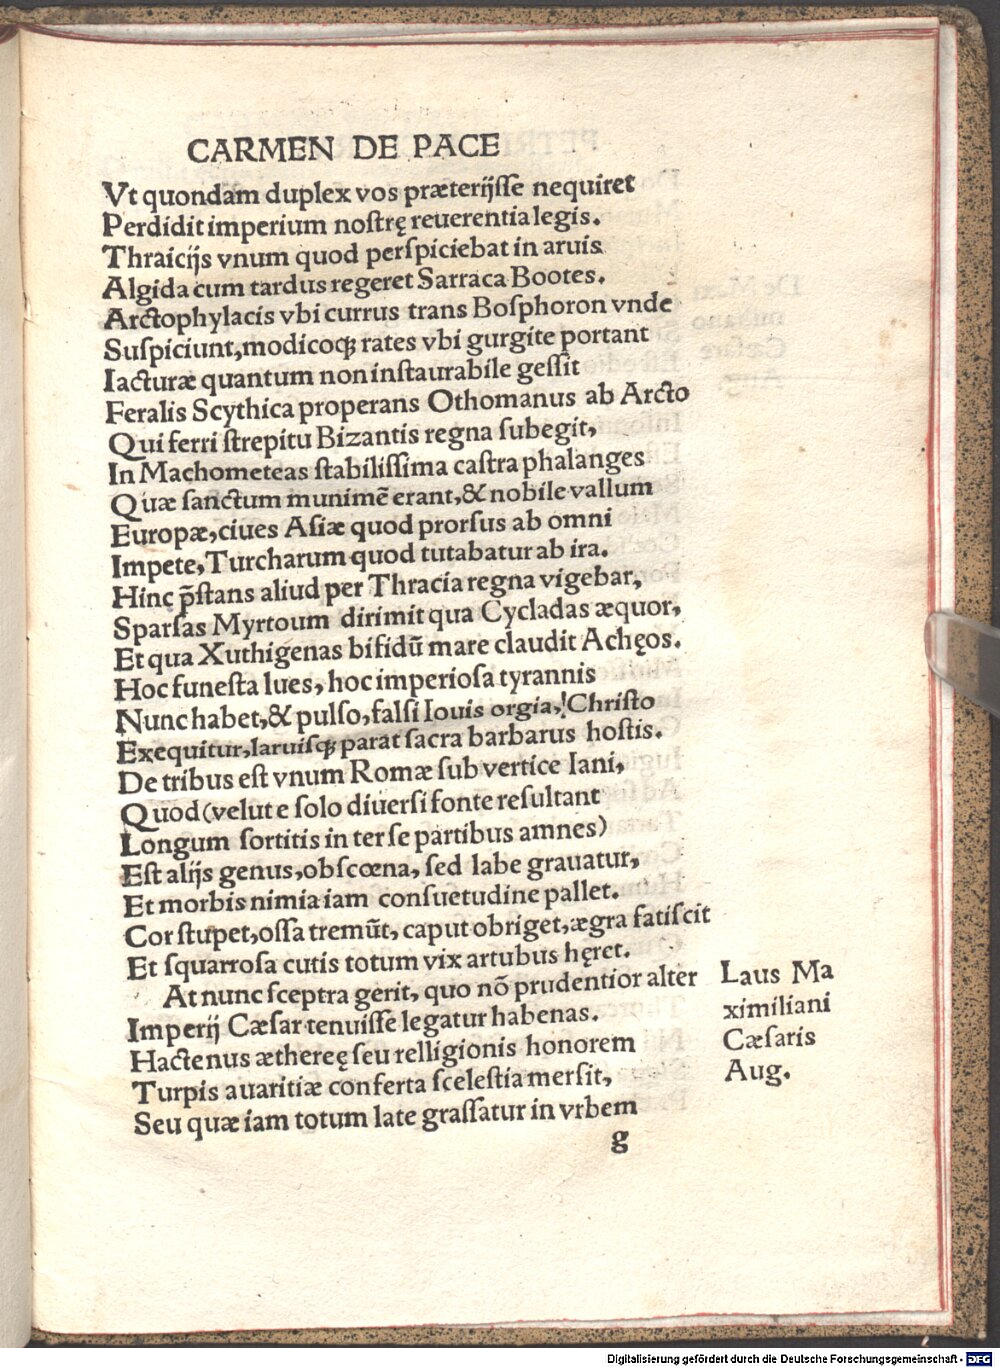 CARMEN DE PACE
Vt quondam duplex vos præterijſſe nequiret
Perdidit imperium noſtrę reuerentia legis.
Thraicijs vnum quod perſpiciebat in aruis
Algida cum tardus regeret Sarraca Bootes.
Arctophylacis vbi currus trans Boſphoron vnde
Suſpiciunt,modicoqꝫ rates vbi gurgite portant
Iacturæ quantum non inſtaurabile geſſit
Feralis Scythica properans Othomanus ab Arcto
Qui ferri ſtrepitu Bizantis regna ſubegit,
In Machometeas ſtabiliſſima caſtra phalanges
Quæ ſanctum munimē erant,& nobile vallum
Europæ,ciues Aſiæ quod prorſus ab omni
Impete,Turcharum quod tutabatur ab ira.
Hinc p̄ſtans aliud per Thracia regna vigebar,
Sparſas Myrtoum dirimit qua Cycladas æquor,
Et qua Xuthigenas bifidū mare claudit Achęos.
Hoc funeſta lues,hoc imperioſa tyrannis
Nunc habet,& pulſo,falſi Iouis orgia,!Chriſto
Exequitur,laruiſqꝫ parat ſacra barbarus hoſtis.
De tribus eſt vnum Romæ ſub vertice Iani,
Quod(velut e ſolo diuerſi fonte reſultant
Longum ſortitis in ter ſe partibus amnes)
Eſt alijs genus,obſcœna,ſed labe grauatur,
Et morbis nimia iam conſuetudine pallet.
Cor ſtupet,oſſa tremūt,caput obriget,ægra fatiſcit
Et ſquarroſa cutis totum vix artubus hęret.
At nunc ſceptra gerit,quo nō prudentior alter
Imperij Cæſar tenuiſſe legatur habenas.
Hactenus æthereę ſeu relligionis honorem
Turpis auaritiæ conferta ſceleſtia merſit,
Seu quæ iam totum late graſſatur in vrbem
g
Laus Ma
ximiliani
Cæſaris
Aug.
Digitalisierung gefördert durch die Deutsche Forschungsgemeinschaft - DFG